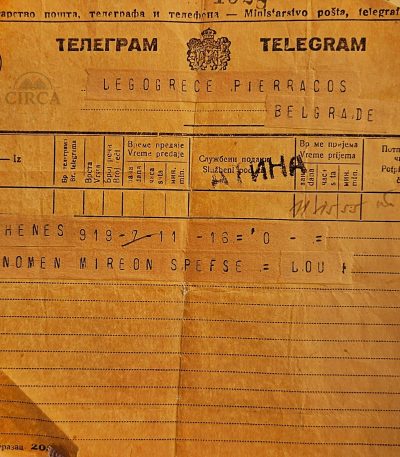 арство пошта, телеграфа и телефона — Ministarstvo pošta, telegraf
ТЕЛЕГРАМ TELEGRAM
CIRCA
LEGOGRECE PIERRACOS
BELGRADE
Iz
Бр. телеграма
Br. telegrama
Врста
Vrsta
Број речи
Broj reči
Време предаје
Vreme predaje
дана
dana
часа
sata
мин.
min.
Службени подаци
Službeni pod
АТИНА
Време пријема
Vreme prijema
дана
dana
часа
sata
мин.
min.
Потп
Potp
HENES 919-7-11 -16=0 -=
NOMEN MIREON SPEFSE = LOU
бразац 20